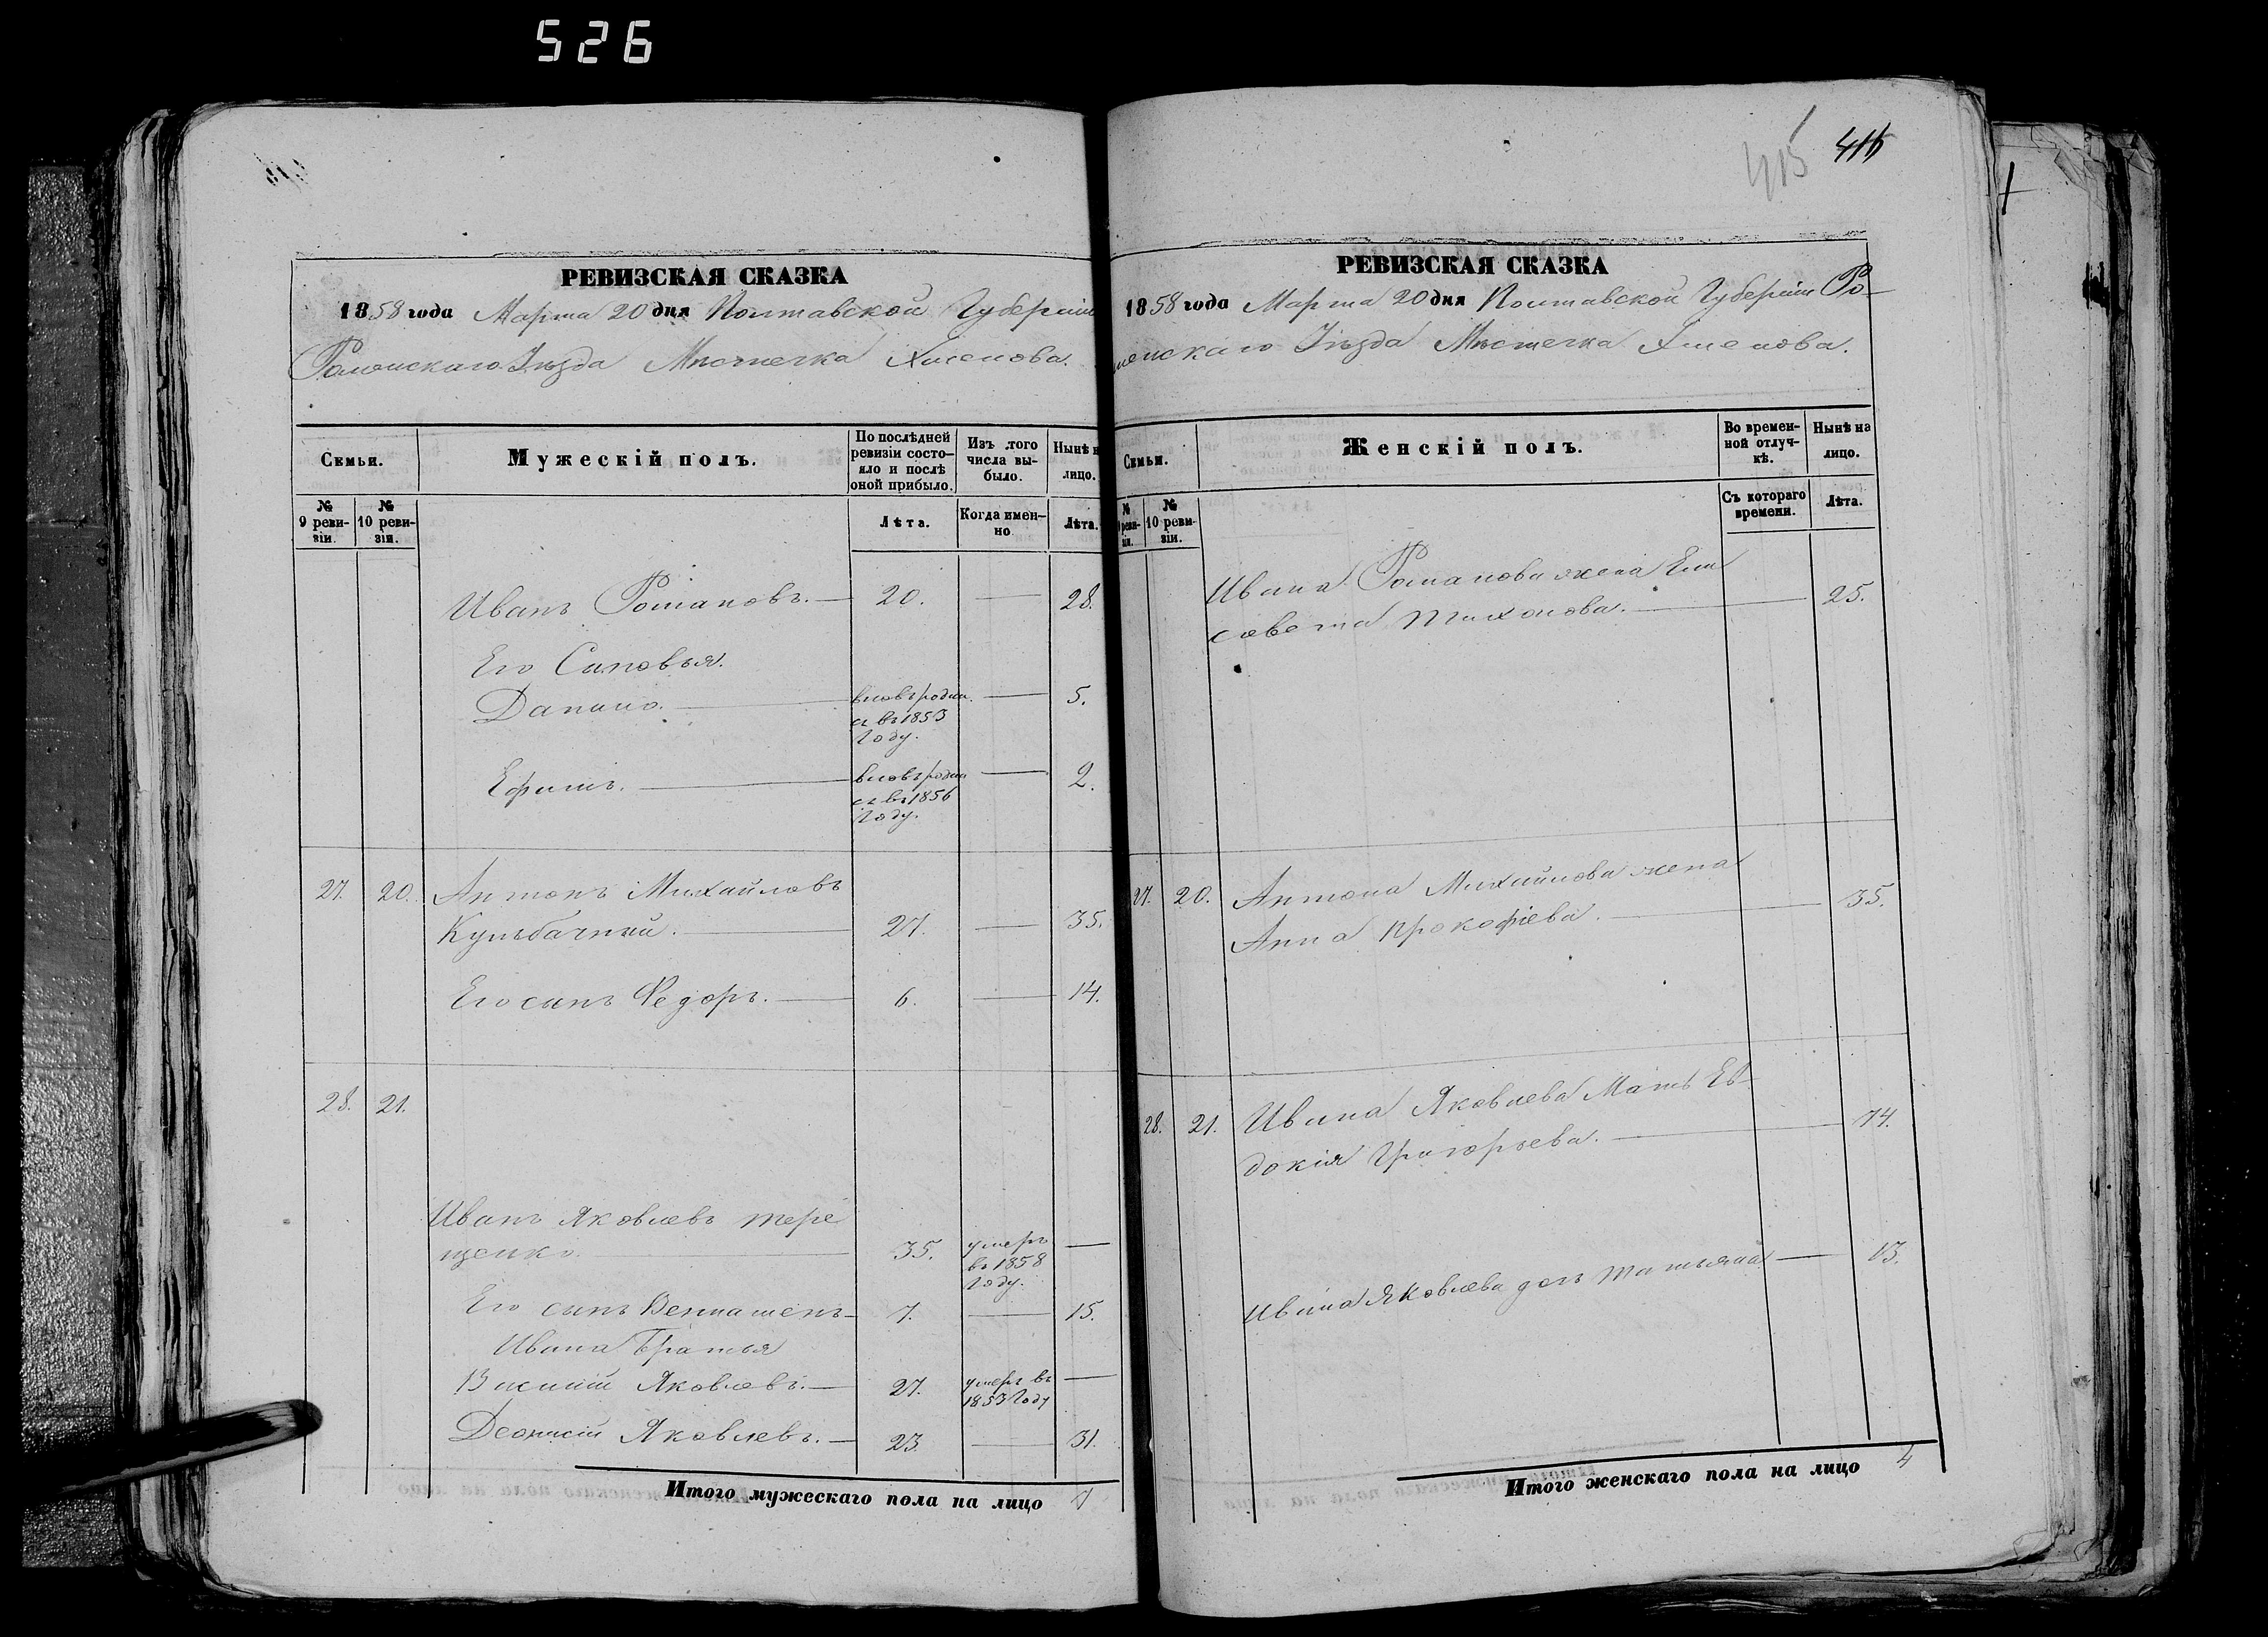 526
415 415
РЕВИЗСКАЯ СКАЗКА
1858 года Марта 20 дня Полтавской Губерніи
Роменскаго Уѣзда Мѣстечка Хмелова.
Семьи.
Мужескій полъ.
По послѣдней ревизіи состояло и послѣ оной прибыло.
Изъ того числа выбыло.
Нынѣ на лицо.
№ 9 ревизіи.
№ 10 ревизіи.
Лѣта.
Когда именно
Лѣта.
Иванъ Романовъ. — 20. — 28.
Его Сыновья.
Данило. — вновь родил. — 5.
ся въ 1853
году.
Ефимъ. — вновь родил — 2.
ся въ 1856
году.
27. 20. Антонъ Михайловъ
Кульбачный. — 27. — 35.
Его сынъ Федоръ. — 6. — 14.
28. 21.
Иванъ Яковлевъ Тере
щенко. — 35. умеръ —
въ 1858
году.
Его сынъ — 7. — 15.
Ивана Братья
Василій Яковлевъ. — 27. умеръ въ —
1853 году
Деонисій Яковлевъ. — 23. — 31.
Итого мужескаго пола на лицо 7
РЕВИЗСКАЯ СКАЗКА
1858 года Марта 20 дня Полтавской Губерніи Ро-
менскаго Уѣзда Мѣстечка Хмелова.
Семьи.
Женскій полъ.
Во временной отлучкѣ.
Нынѣ на лицо.
№ 9 ревизіи.
№ 10 ревизіи.
Съ котораго времени.
Лѣта.
Ивана Романова жена Ели
савета Тихонова. — 25.
27. 20. Антона Михайлова жена
Анна Прокофіева. — 35.
28. 21. Ивана Яковлева Мать Ев-
докія Григорьева. — 74.
Ивана Яковлева дочь Татьяна — 13.
Итого женскаго пола на лицо 4